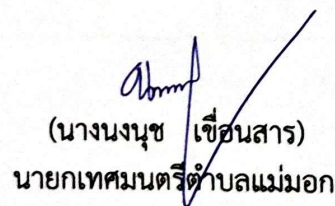 (นางนงนุช เขื่อนสาร)
นายกเทศมนตรีตำบลแม่มอก